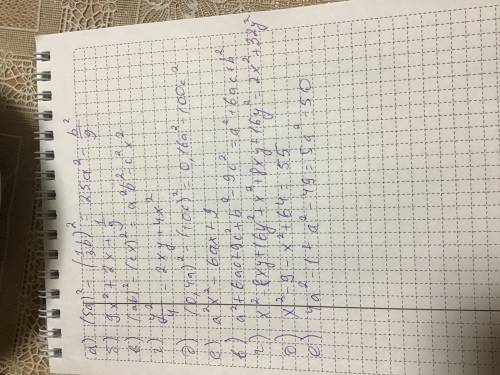 а) (5a)² - (1/3 b)² = 25a² - b²/9
б) 9x² + 2x + 1/9
в) (ab)² - (cx)² = a²b² - c²x²
г) y²/4 - 2xy + 4x²
д) (0,4a)² - (10c)² = 0,16a² - 100c²
е) a²x² - 6ax + 9
в) a² + 6ac + 9c² + b² - 9c² = a² + 6ac + b²
г) x² - 8xy + 16y² + x² + 8xy + 16y² = 2x² + 32y²
д) x² - 9 - x² + 64 = 55
е) 4a² - 1 + a² - 49 = 5a² - 50